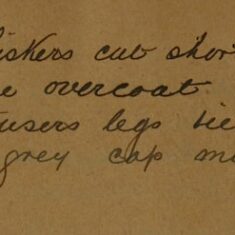 iskers cut shor
e overcoat
users legs tie
grey cap m